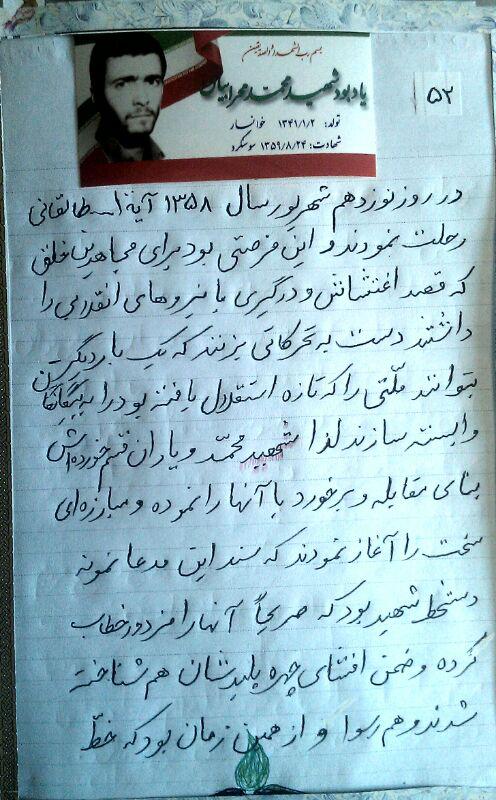 بسم رب الشهداء و الصدیقین
یادبود شهید محمد محرابیان
تولد: ۱۳۴۱/۱/۲ خوانسار
شهادت: ۱۳۵۹/۸/۲۴ سوسنگرد
۵۲
در روز نوزدهم شهریور سال ۱۳۵۸ آیة ا... طالقانی
رحلت نمودند و این فرصتی بود برای مجاهدین خلق
که قصد اغتشاش و درگیری با نیروهای انقلابی را
داشتند دست به تحرکاتی بزنند که یک بار دیگر
بتوانند ملّتی را که تازه استقلال یافته بود را به بیگانگان
وابسته سازند لذا شهید محمّد و یاران قسم خورده‌اش
بنای مقابله و برخورد با آنها را نموده و مبارزه‌ای
سخت را آغاز نمودند که سند این مدعا نمونه
دستخط شهید بود که صریحاً آنها را مزدور خطاب
کرده و ضمن افشای چهره پلیدشان هم شناخته
شدند و هم رسوا و از همین زمان بود که خطّ